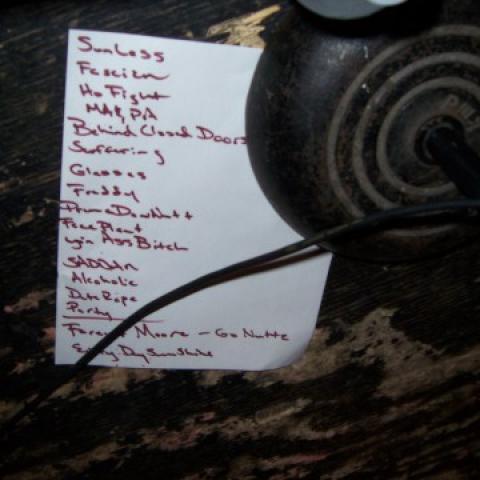 Sunless
Fascism
Ho Fight
MA & PA
Behind Closed Doors
Suffering
Glasses
Freddy
Face Plant
Ass Bitch
SADDAM
Alcoholic
Date Rape
Party
Moore - Go Nutts
Every Day Sunshine